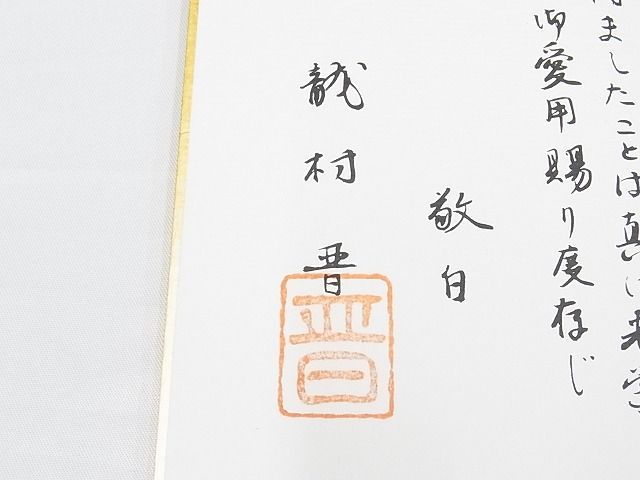 ましたことは真に光栄
御愛用賜り度存じ
敬白
龍村晋
晋